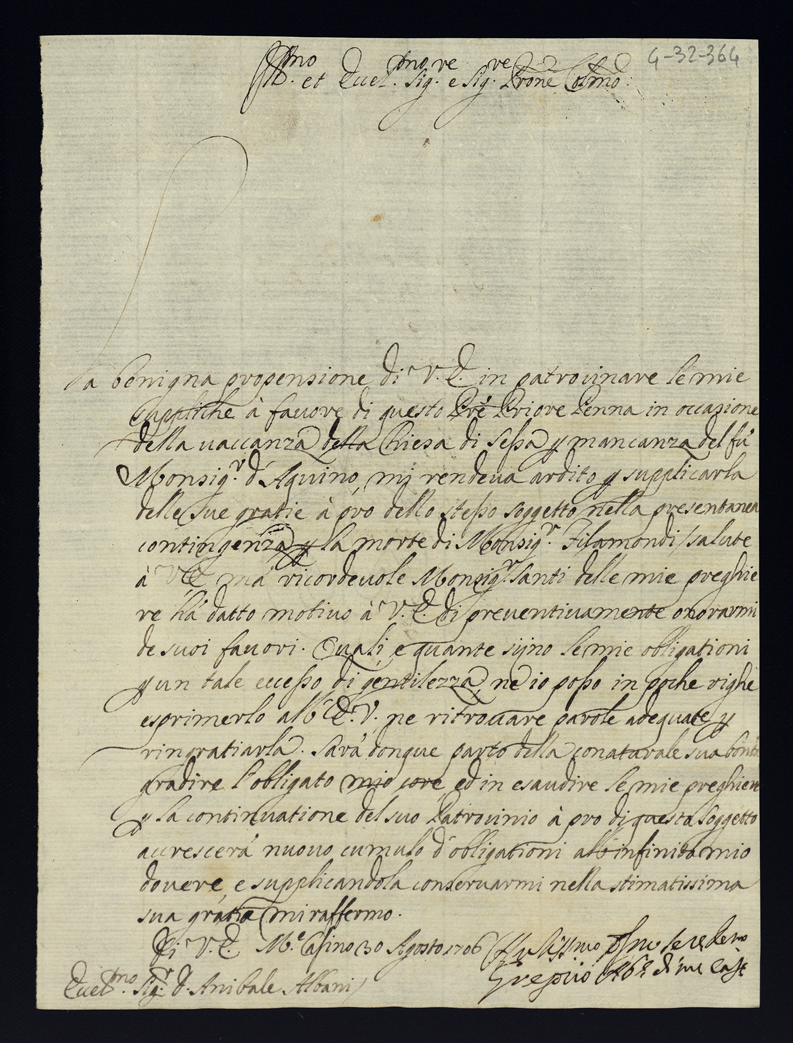 4-32-364
Ill.mo et Eccl.mo Sig.re e Sig.re Prone Colmo
La benigna propensione di V.E. in patrocinare le mie
suppliche à favore di questo Pre Priore Penna in occasione
della vaccanza della Chiesa di Sessa p mancanza del fù
Monsig.r d'Aquino, mi rendeva ardito p supplicarla
delle sue gratie à prò dello stesso soggetto nella presentanea
contingenza p la morte di Monsig.r Filamondi (salute
à V.E. mà ricordevole Monsig.r Santi delle mie preghie
re hà datto motivo à V.E. di preventivamente onorarmi
de suoi favori. Quali, e quante sijno le mie obligationi
p un tale eccesso di gentilezza, ne io posso in poche righe
esprimerlo all' E.V. ne ritrovare parole adequate p
ringratiarla. Sarà donque parto della conaturale sua bontà
gradire l'obligato mio core, ed in esaudire le mie preghiere
p la continuatione del suo Patrocinio à prò di questo soggetto
accrescerà nuovo cumulo d'obligationi all' infinito mio
dovere, e supplicandola conservarmi nella stimatissima
sua gratia mi raffermo.
Di V.E. M.e Casino 30 Agosto 1706
Gregorio Ab.e di M. Cas.
Eccel.mo Sig.r D. Anibale Albani